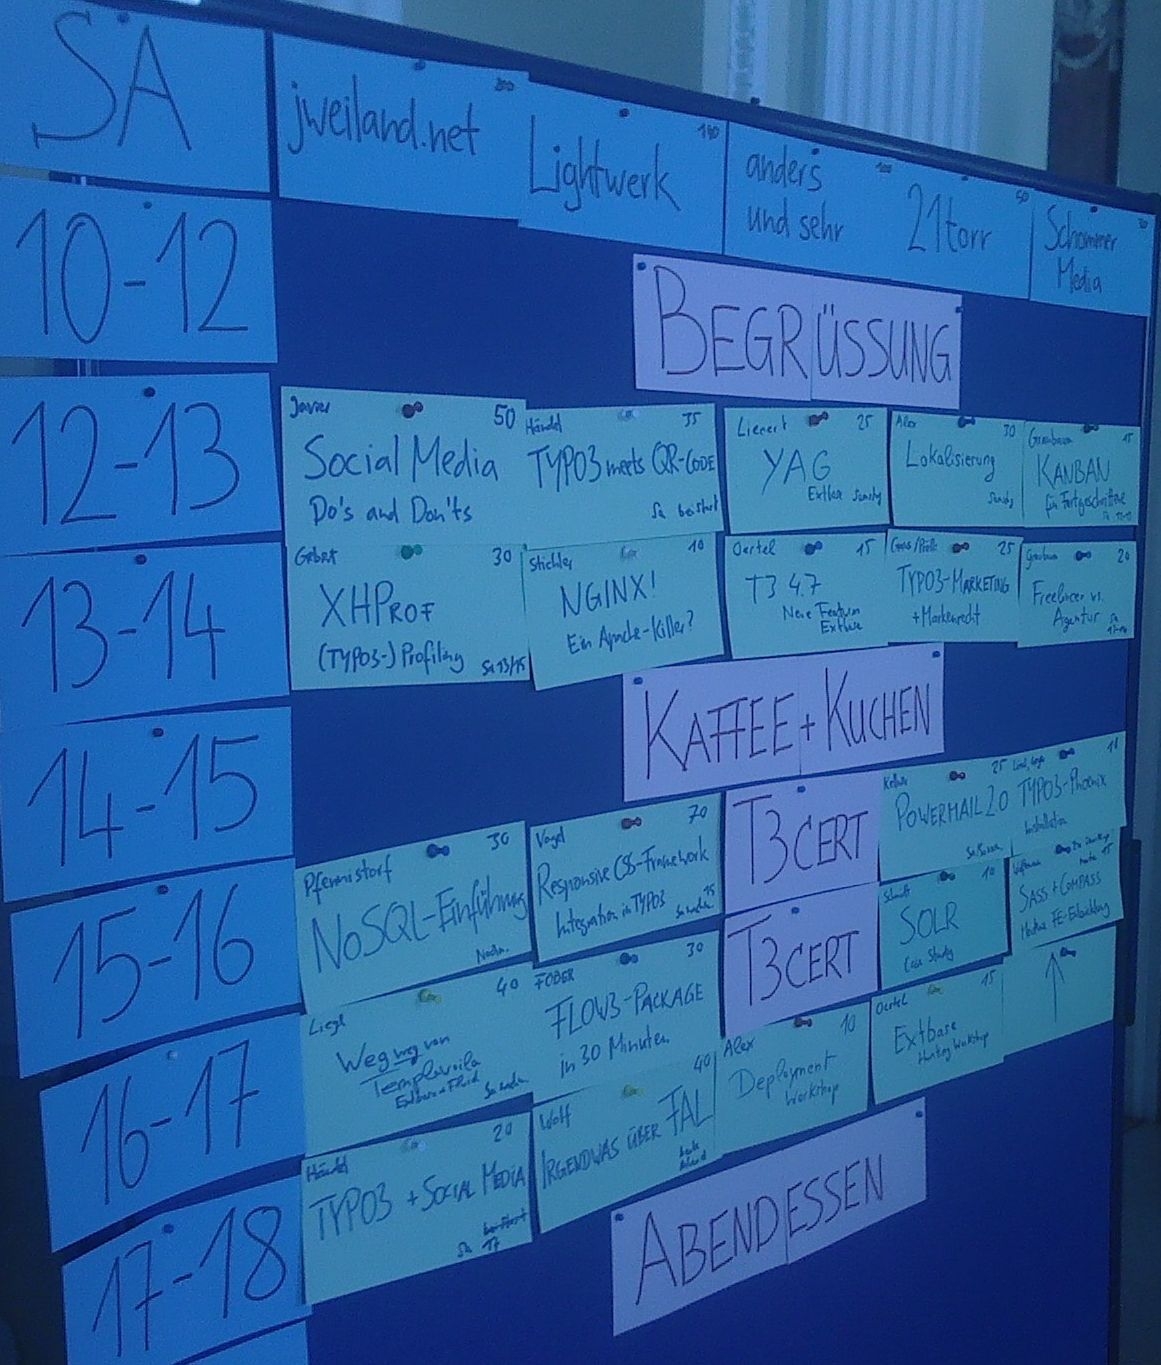 SA
jweiland.net
Lightwerk 140
anders
und sehr
21torr 50
Schommer
Media
10-12
BEGRÜSSUNG
12-13
Javier 50
Social Media
Do's and Don'ts
Händel 35
TYPO3 meets QR-CODE
Sa
Lienert 25
YAG
Extbase
Alex 30
Lokalisierung
15
KANBAN
für Fortgeschrittene
13-14
Gebert 30
XHPROF
(TYPO3-) Profiling
Sa 13/15
Stichler 10
NGINX!
Ein Apache-Killer?
Oertel 15
T3 4.7
Neue Features
Extbase
25
TYPO3-MARKETING
+ Markenrecht
20
Freelancer vs.
Agentur
KAFFEE + KUCHEN
14-15
15-16
Pfennistorf 30
NoSQL-Einführung
Nachm.
Vogel 70
Responsive CSS-Framework
Integration in TYPO3
T3CERT
Keller 25
POWERMAIL 2.0
18
TYPO3-Phoenix
Installation
16-17
Liegl 40
Weg weg von
Templavoila
Extbase + Fluid
FODER 30
FLOW3-PACKAGE
in 30 Minuten
T3CERT
10
SOLR
Case Study
SASS + COMPASS
17-18
Händel 20
TYPO3 + SOCIAL MEDIA
Sa 17
Wolf 40
IRGENDWAS ÜBER FAL
Alex 10
Deployment
Workshop
Oertel 15
Extbase
Workshop
ABENDESSEN